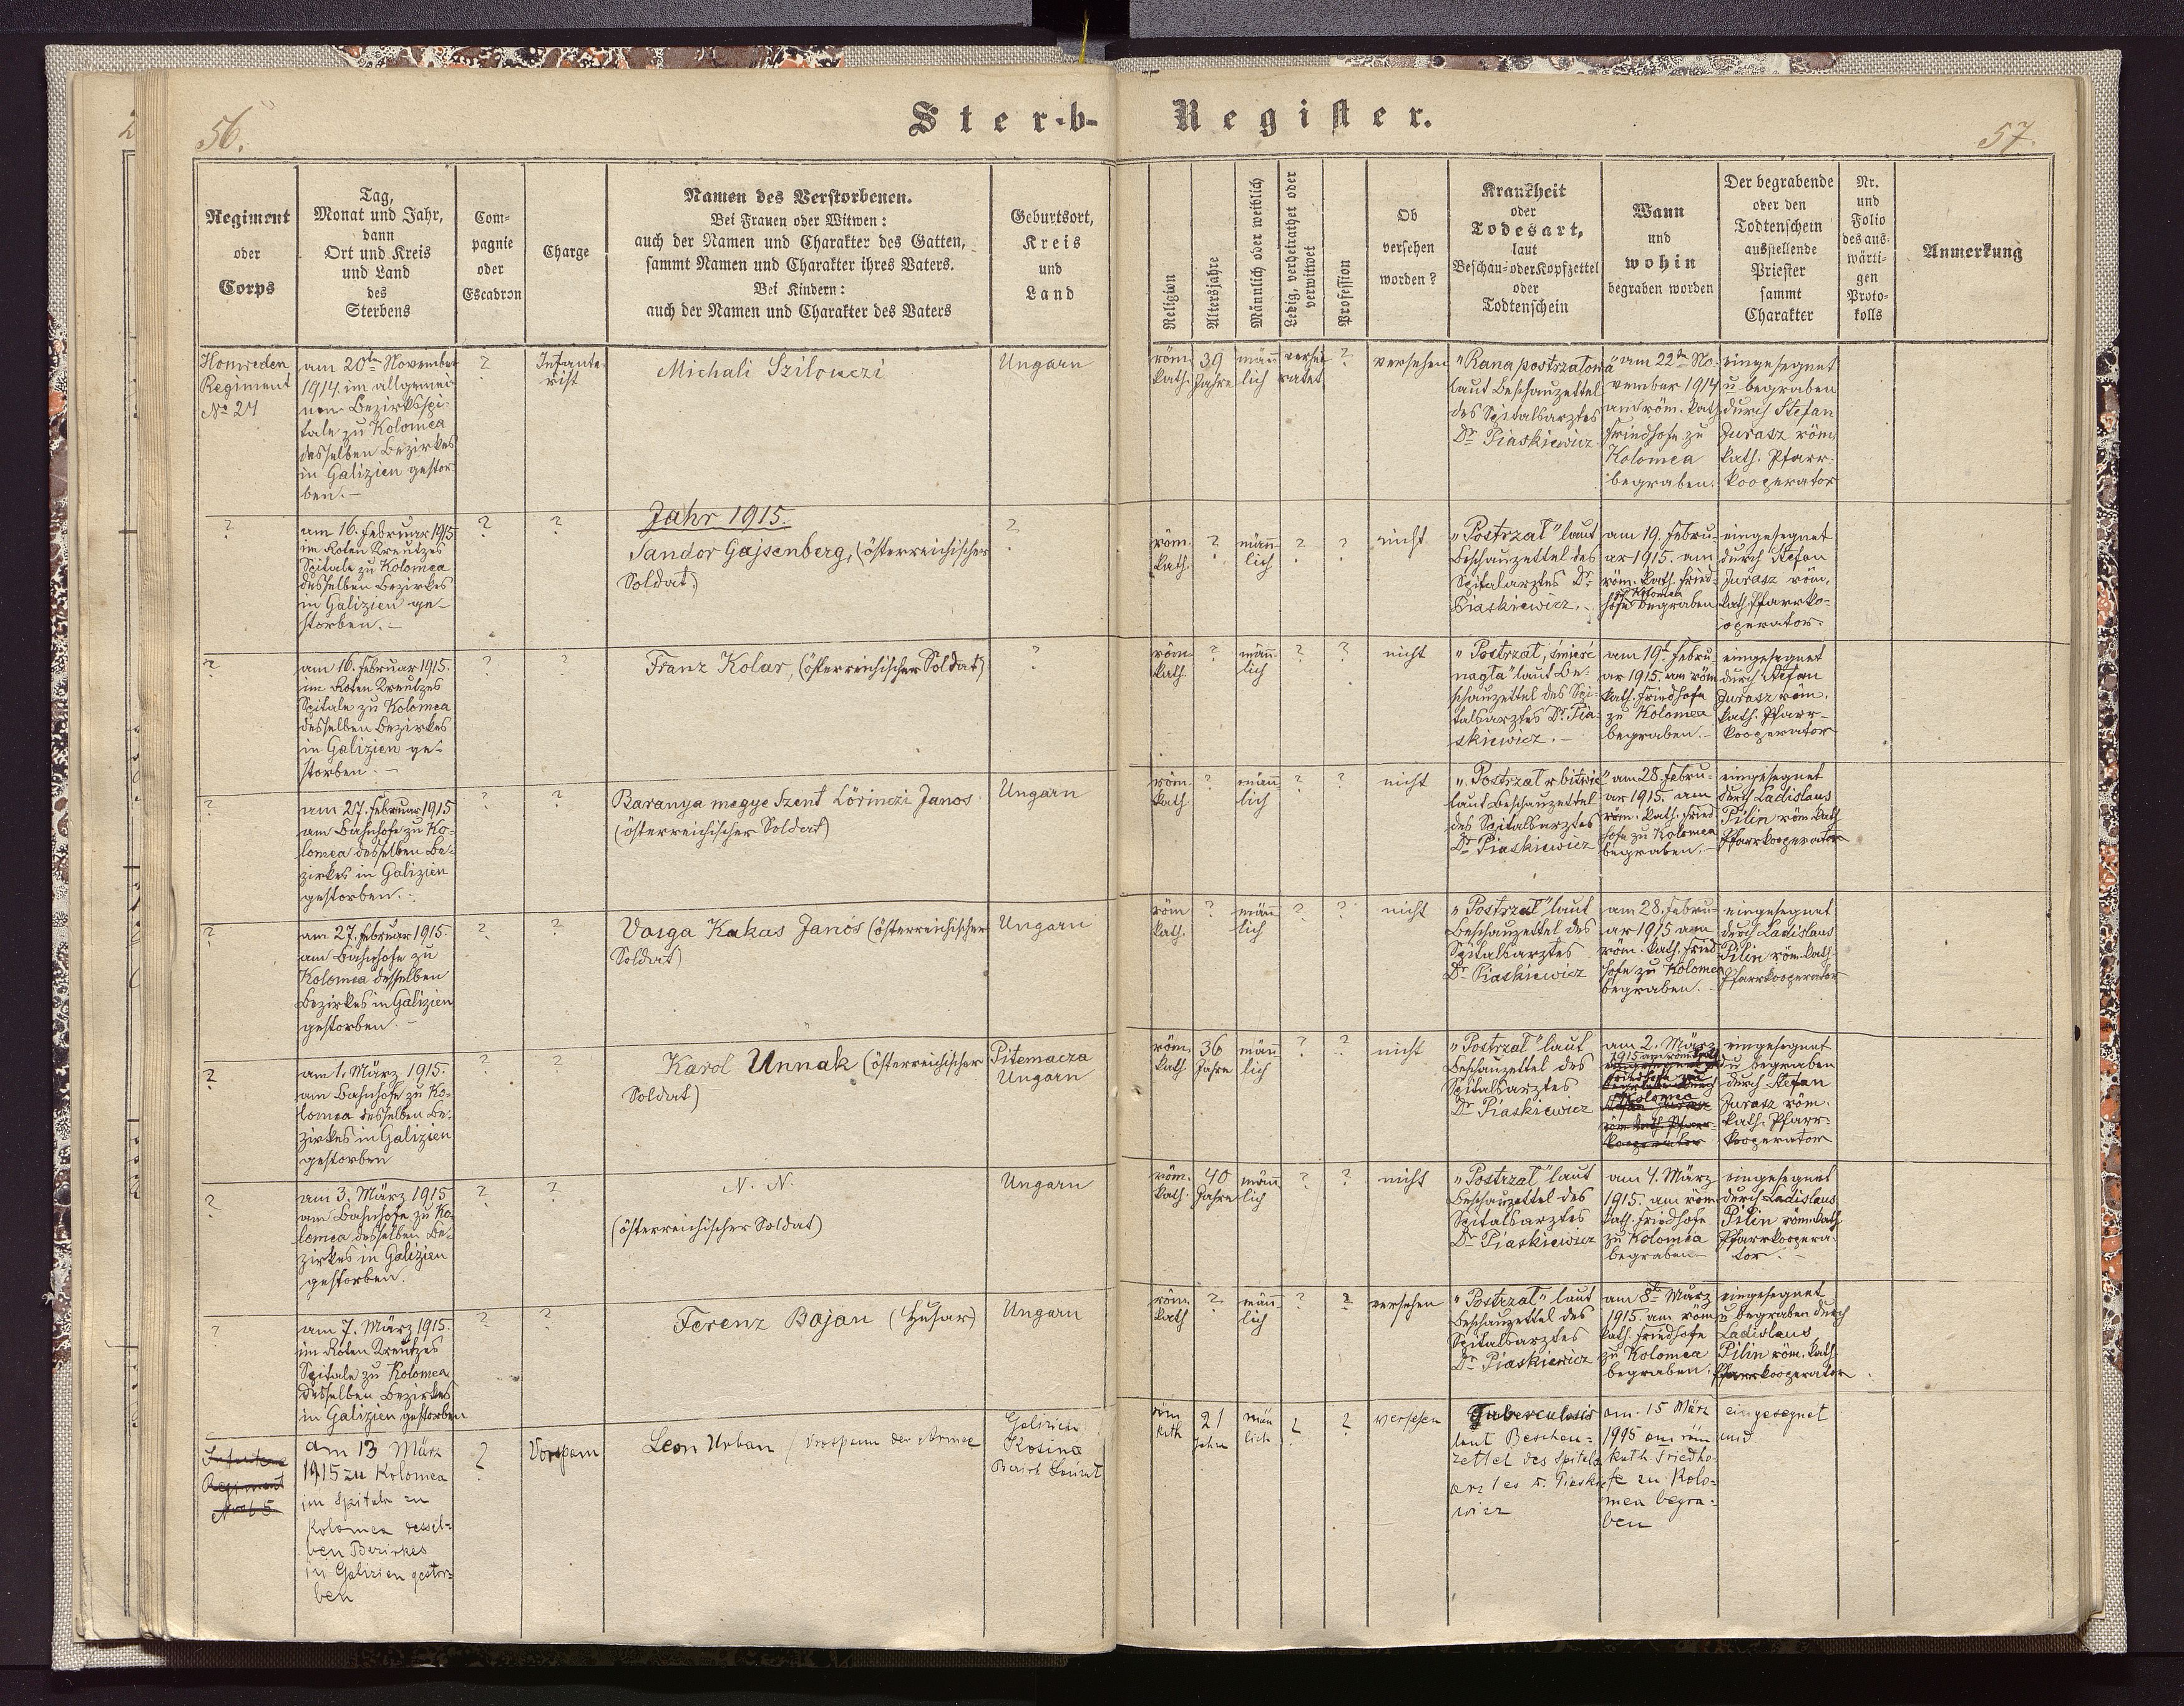 56.
Sterb-
Register.
57.
Regiment
oder
Corps
Tag,
Monat und Jahr,
dann
Ort und Kreis
und Land
des
Sterbens
Com-
pagnie
oder
Escadron
Charge
Namen des Verstorbenen.
Bei Frauen oder Witwen:
auch der Namen und Charakter des Gatten,
sammt Namen und Charakter ihres Vaters.
Bei Kindern:
auch der Namen und Charakter des Vaters
Geburtsort,
Kreis
und
Land
Religion
Altersjahre
Männlich oder weiblich
Ledig, verheirathet oder
verwitwet
Profession
Ob
versehen
worden?
Krankheit
oder
Todesart,
laut
Beschau- oder Kopfzettel
oder
Todtenschein
Wann
und
wohin
begraben worden
Der begrabende
oder den
Todtenschein
ausstellende
Priester
sammt
Charakter
Nr.
und
Folio
des aus-
wärti-
gen
Proto-
kolls
Anmerkung
Honweden
Regiment
No 27
am 20ten November
1914 im allgemei
nen Bezirksspi-
tale zu Kolomea
desselben Bezirkes
in Galizien gestor-
ben.-
?
Infante-
rist
Michali
Ungarn
röm.
kath.
39
Jahre
männ
lich
verhei
ratet
?
versehen
"Rana postrzałowa"
laut Beschauzettel
des Spitalsarztes
Dr Piaskiewicz
am 22ten No-
vember 1914
am röm. kath.
Friedhofe zu
Kolomea
begraben.
eingesegnet
u. begraben
durch Stefan
Jurasz röm.
kath. Pfarr-
kooperator
Jahr 1915.
?
am 16. Februar 1915
im Roten Kreutzes
Spitale zu Kolomea
desselben Bezirkes
in Galizien ge-
storben.-
?
?
Sandor Gajsenberg, (österreichischer
Soldat)
?
röm.
kath.
?
männ
lich
?
?
nicht
"Postrzał" laut
Beschauzettel des
Spitalarztes Dr
Piaskiewicz.-
am 19. Febru-
ar 1915. am
röm. kath. Fried-
zu Kolomea
hofe begraben
eingesegnet
durch Stefan
Jurasz röm.
kath. Pfarrko-
operator.
?
am 16. Februar 1915.
im Roten Kreutzes
Spitale zu Kolomea
desselben Bezirkes
in Galizien ge-
storben.-
?
?
Franz Kolar, (österreichischer Soldat)
?
röm.
kath.
?
männ
lich
?
?
nicht
"Postrzał, śmierć
nagła" laut Be-
schauzettel des Spi-
talsarztes Dr Pia
skiewicz.-
am 19t Febru-
ar 1915. am röm
kath. Friedhofe
zu Kolomea
begraben.-
eingesegnet
durch Stefan
Jurasz röm.
kath. Pfarr-
kooperator
?
am 27. Februar 1915
am Bahnhofe zu Ko-
lomea desselben Be-
zirkes in Galizien
gestorben.-
?
?
Baranya megye Szent Lörinczi Janos
(österreichischer Soldat)
Ungarn
röm.
kath.
?
männ
lich
?
?
nicht
"Postrzał w bitwie"
laut Beschauzettel
des Spitalsarztes
Dr Piaskiewicz
am 28. Febru-
ar 1915. am
röm. kath. Fried
hofe zu Kolomea
begraben.-
eingesegnet
durch Ladislaus
Pilin röm. kath
Pfarrkooperator
?
am 27. Februar 1915.
am Bahnhofe zu
Kolomea desselben
Bezirkes in Galizien
gestorben.-
?
?
Varga Kakas Janós (österreichischer
Soldat)
Ungarn
röm
kath.
?
männ
lich
?
?
nicht
"Postrzał" laut
Beschauzettel des
Spitalsarztes
Dr Piaskiewicz
am 28. Febru-
ar 1915 am
röm. kath. Fried
hofe zu Kolomea
begraben.-
eingesegnet
durch Ladislaus
Pilin röm. kath.
Pfarrkooperator
?
am 1. März 1915.
am Bahnhofe zu Ko-
lomea desselben Be-
zirkes in Galizien
gestorben
?
?
Karol Unnak (österreichischer
Soldat)
Pitemacza
Ungarn
röm.
kath
36
Jahre
männ
lich
?
?
nicht
"Postrzał" laut
Beschauzettel des
Spitalsarztes
Dr Piaskiewicz
am 2. März
1915 am röm. kath
Friedhofe zu
Kolomea
röm. kath. Pfarr-
kooperator
eingesegnet
u begraben
durch Stefan
Jurasz röm.
kath. Pfarr-
kooperator
?
am 3. März 1915
am Bahnhofe zu Ko
lomea desselben Be-
zirkes in Galizien
gestorben.
?
?
N. N.
(österreichischer Soldat)
Ungarn
röm.
kath.
40
Jahre
männ
lich
?
?
nicht
"Postrzał" laut
Beschauzettel des
Spitalsarztes
Dr Piaskiewicz
am 4. März
1915. am röm
kath. Friedhofe
zu Kolomea
begraben.-
eingesegnet
durch Ladislaus
Pilin röm. kath
Pfarrkoopera-
tor.-
?
am 7. März 1915.
im Roten Kreutzes
Spitale zu Kolomea
desselben Bezirkes
in Galizien gestorben
?
?
Ferenz Bojan (Husar)
Ungarn
röm.
kath
?
männ
lich
?
?
versehen
"Postrzał" laut
Beschauzettel des
Spitalsarztes
Dr Piaskiewicz
am 8t März
1915. am röm
kath. Friedhofe
zu Kolomea
begraben.
eingesegnet
u begraben durch
Ladislaus
Pilin röm. kath
Pfarrkooperator
Regiment
am 13 März
1915 zu Kolomea
im Spitale zu
Kolomea dessel-
ben Bezirkes
in Galizien gestor-
ben
?
Vorspann
Leon Urban / Vorspann der Armee
Galizien
Kosina
Bezirk
röm
kath
21
Jahre
män
lich
?
?
versehen
Tuberculosis
laut Beschau-
zettel des Spitals
arztes D. Piaskie
wicz
am 15 März
1915 am röm
kath. Friedho-
fe zu Kolo-
mea begra-
ben
eingesegnet
und